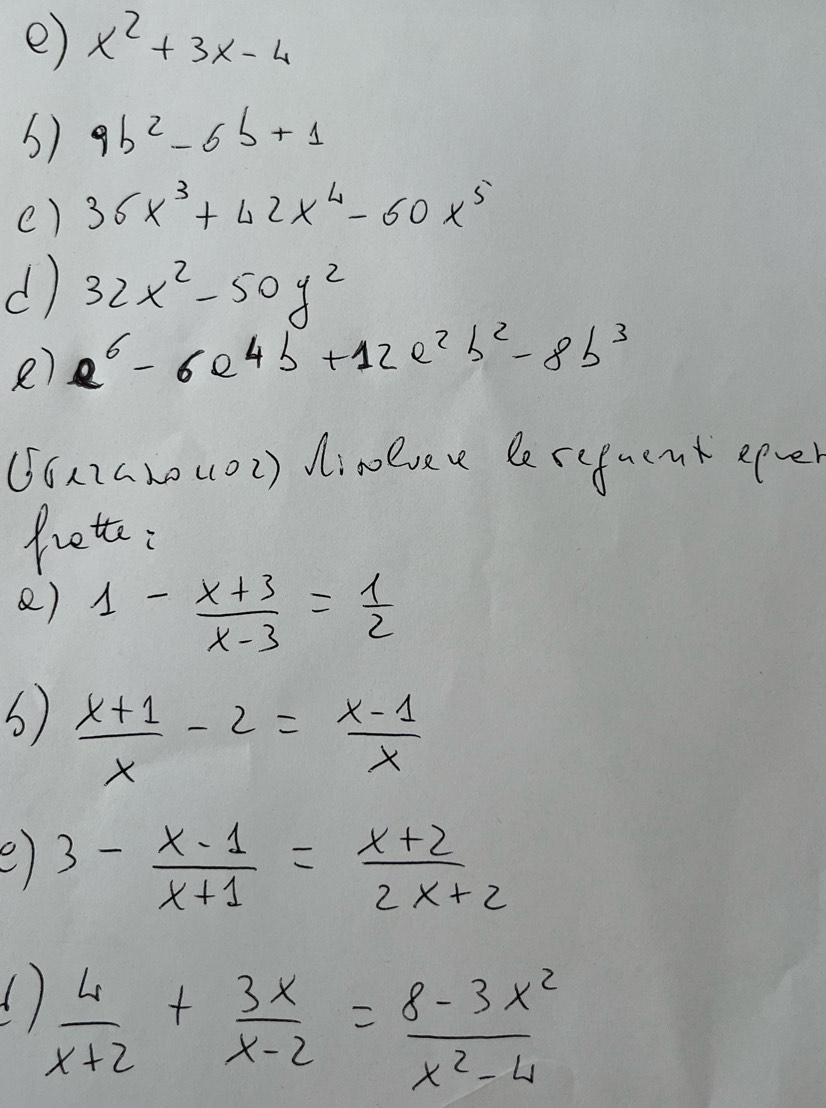 a) x² + 3x - 4
b) 9b² - 6b + 1
c) 36x³ + 42x⁴ - 60x⁵
d) 32x² - 50y²
e) a⁶ - 6a⁴b + 12a²b² - 8b³
Risolvere le seguenti
fratte:
a) 1 - (x+3)/(x-3) = 1/2
b) (x+1)/x - 2 = (x-1)/x
c) 3 - (x-1)/(x+1) = (x+2)/(2x+2)
d) 4/(x+2) + 3x/(x-2) = (8-3x²)/(x²-4)